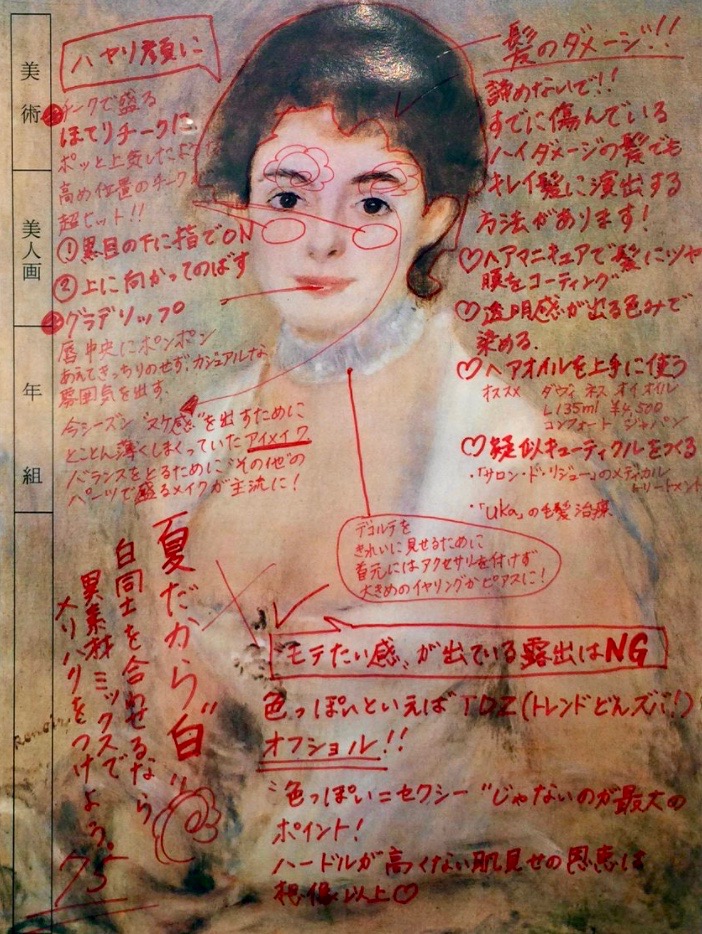 美術
美人画
年
組
ハヤリ顔に
チークで盛る
ほてりチークに
ポッと上気したような
高め位置のチークが
超ヒット!!
①黒目の下に指でON
②上に向かってのばす
グラデリップ
唇中央にポンポン
あえてきっちりのせず、カジュアルな
雰囲気を出す。
今シーズン"ヌケ感"を出すために
とことん薄くしまくっていたアイメイク
バランスをとるために"その他"の
パーツで盛るメイクが主流に!
髪のダメージ!!
諦めないで!!
すでに傷んでいる
ハイダメージの髪でも
キレイ髪に演出する
方法があります!
♡ヘアマニキュアで髪にツヤ
膜をコーティング
♡透明感が出る色みで
染める.
♡ヘアオイルを上手に使う
オススメ ダヴィネス オイ オイル
L 135ml ¥4,500
コンフォート ジャパン
♡疑似キューティクルをつくる
・「サロン・ド・リジュー」のメディカル
トリートメント
・「uka」の毛髪治療
デコルテを
きれいに見せるために
首元にはアクセサリを付けず
大きめのイヤリングかピアスに!
"モテたい感"が出ている露出はNG
色っぽいといえばTDZ(トレンドどんズバ!)
オフショル!!
"色っぽい=セクシー"じゃないのが最大の
ポイント!
ハードルが高くない肌見せの恩恵は
想像以上♡
夏だから"白"!!
白同士を合わせるなら
異素材ミックスで
メリハリをつけよう。
75
Renoir.